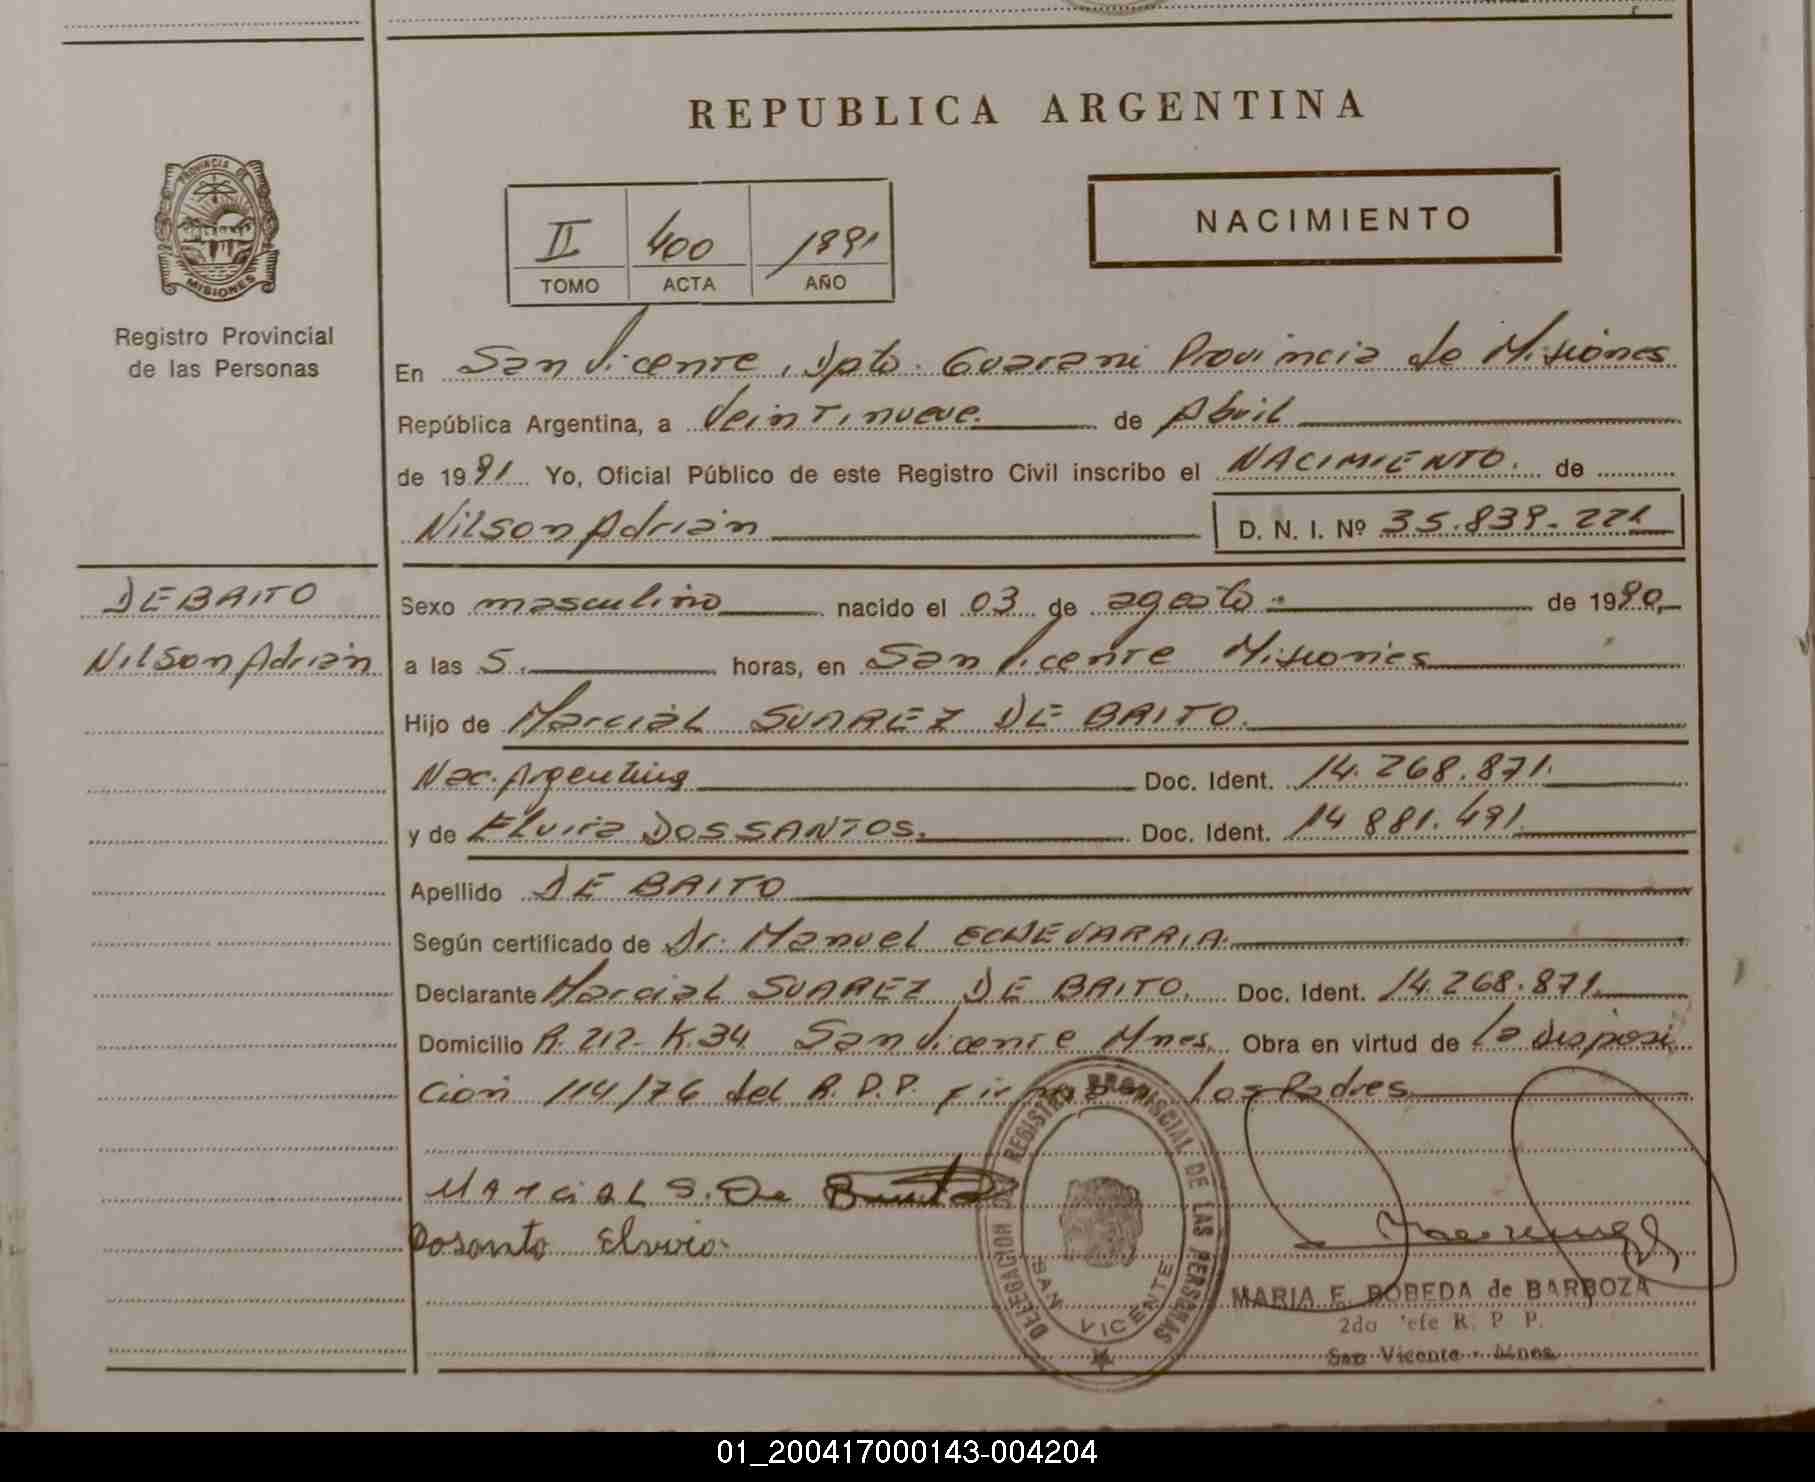 REPUBLICA ARGENTINA
PROVINCIA DE MISIONES
Registro Provincial
de las Personas
II 400 1991
TOMO ACTA AÑO
NACIMIENTO
En San Vicente, Dpto. Guarani Provincia de Misiones
República Argentina, a Veintinueve. de Abril
de 1991 Yo, Oficial Público de este Registro Civil inscribo el NACIMIENTO. de
Nilson Adrián D. N. I. Nº 35.839.221
DE BRITO
Nilson Adrián
Sexo masculino nacido el 03 de agosto. de 1990,
a las 5. horas, en San Vicente Misiones
Hijo de Marcial SUAREZ DE BRITO.
Nac. Argentina Doc. Ident. 14.268.871.
y de Elvira DOS SANTOS. Doc. Ident. 14 881.491
Apellido DE BRITO
Según certificado de Dr. Manuel ECHEVARRIA.
Declarante Marcial SUAREZ DE BRITO. Doc. Ident. 14.268.871.
Domicilio R. 212- K.34 San Vicente Mnes. Obra en virtud de la disposi
ción 114/76 del R.P.P. firman los Padres
Marcial S. De
Dosanto Elvira
DELEGACION DEL REGISTRO PROVINCIAL DE LAS PERSONAS
SAN VICENTE
MARIA E. POBEDA de BARBOZA
2do Jefe R. P. P.
San Vicente - Mnes.
01_200417000143-004204